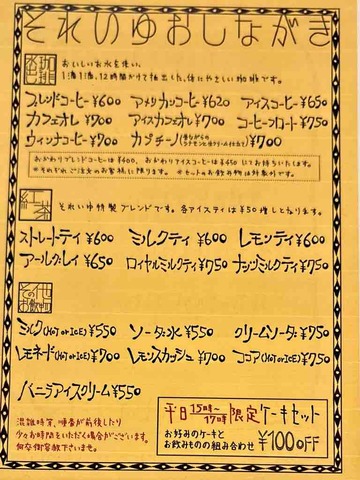 それいゆおしながき
水出珈琲
おいしいお水を使い、
1滴1滴、12時間かけて抽出した、体にやさしい珈琲です。
ブレンドコーヒー ¥600 アメリカンコーヒー ¥620 アイスコーヒー ¥650
カフェオレ ¥700 アイスカフェオレ ¥700 コーヒーフロート ¥750
ウィンナコーヒー ¥700 カプチーノ ¥700
おかわりブレンドコーヒーは¥400、おかわりアイスコーヒーは¥450にてお持ちいたします。
※それぞれご注文のお客様に限ります。 ※セットのお飲み物は対象外です。
紅茶
それいゆ特製ブレンドです。各アイスティは¥50増しとなります。
ストレートティ ¥600 ミルクティ ¥600 レモンティ ¥600
アールグレイ ¥650 ロイヤルミルクティ ¥750 ナッツミルクティ ¥750
その他お飲物
ミルク(HOT or ICE) ¥550 ソーダ水 ¥550 クリームソーダ ¥750
レモネード(HOT or ICE) ¥700 レモンスカッシュ ¥700 ココア(HOT or ICE) ¥750
バニラアイスクリーム ¥550
混雑時等、順番が前後したり
少々お時間をいただく場合がございます。
何卒御容赦下さいませ。
平日15時〜17時限定ケーキセット
お好みのケーキと
お飲みものの組み合わせ ¥100 OFF